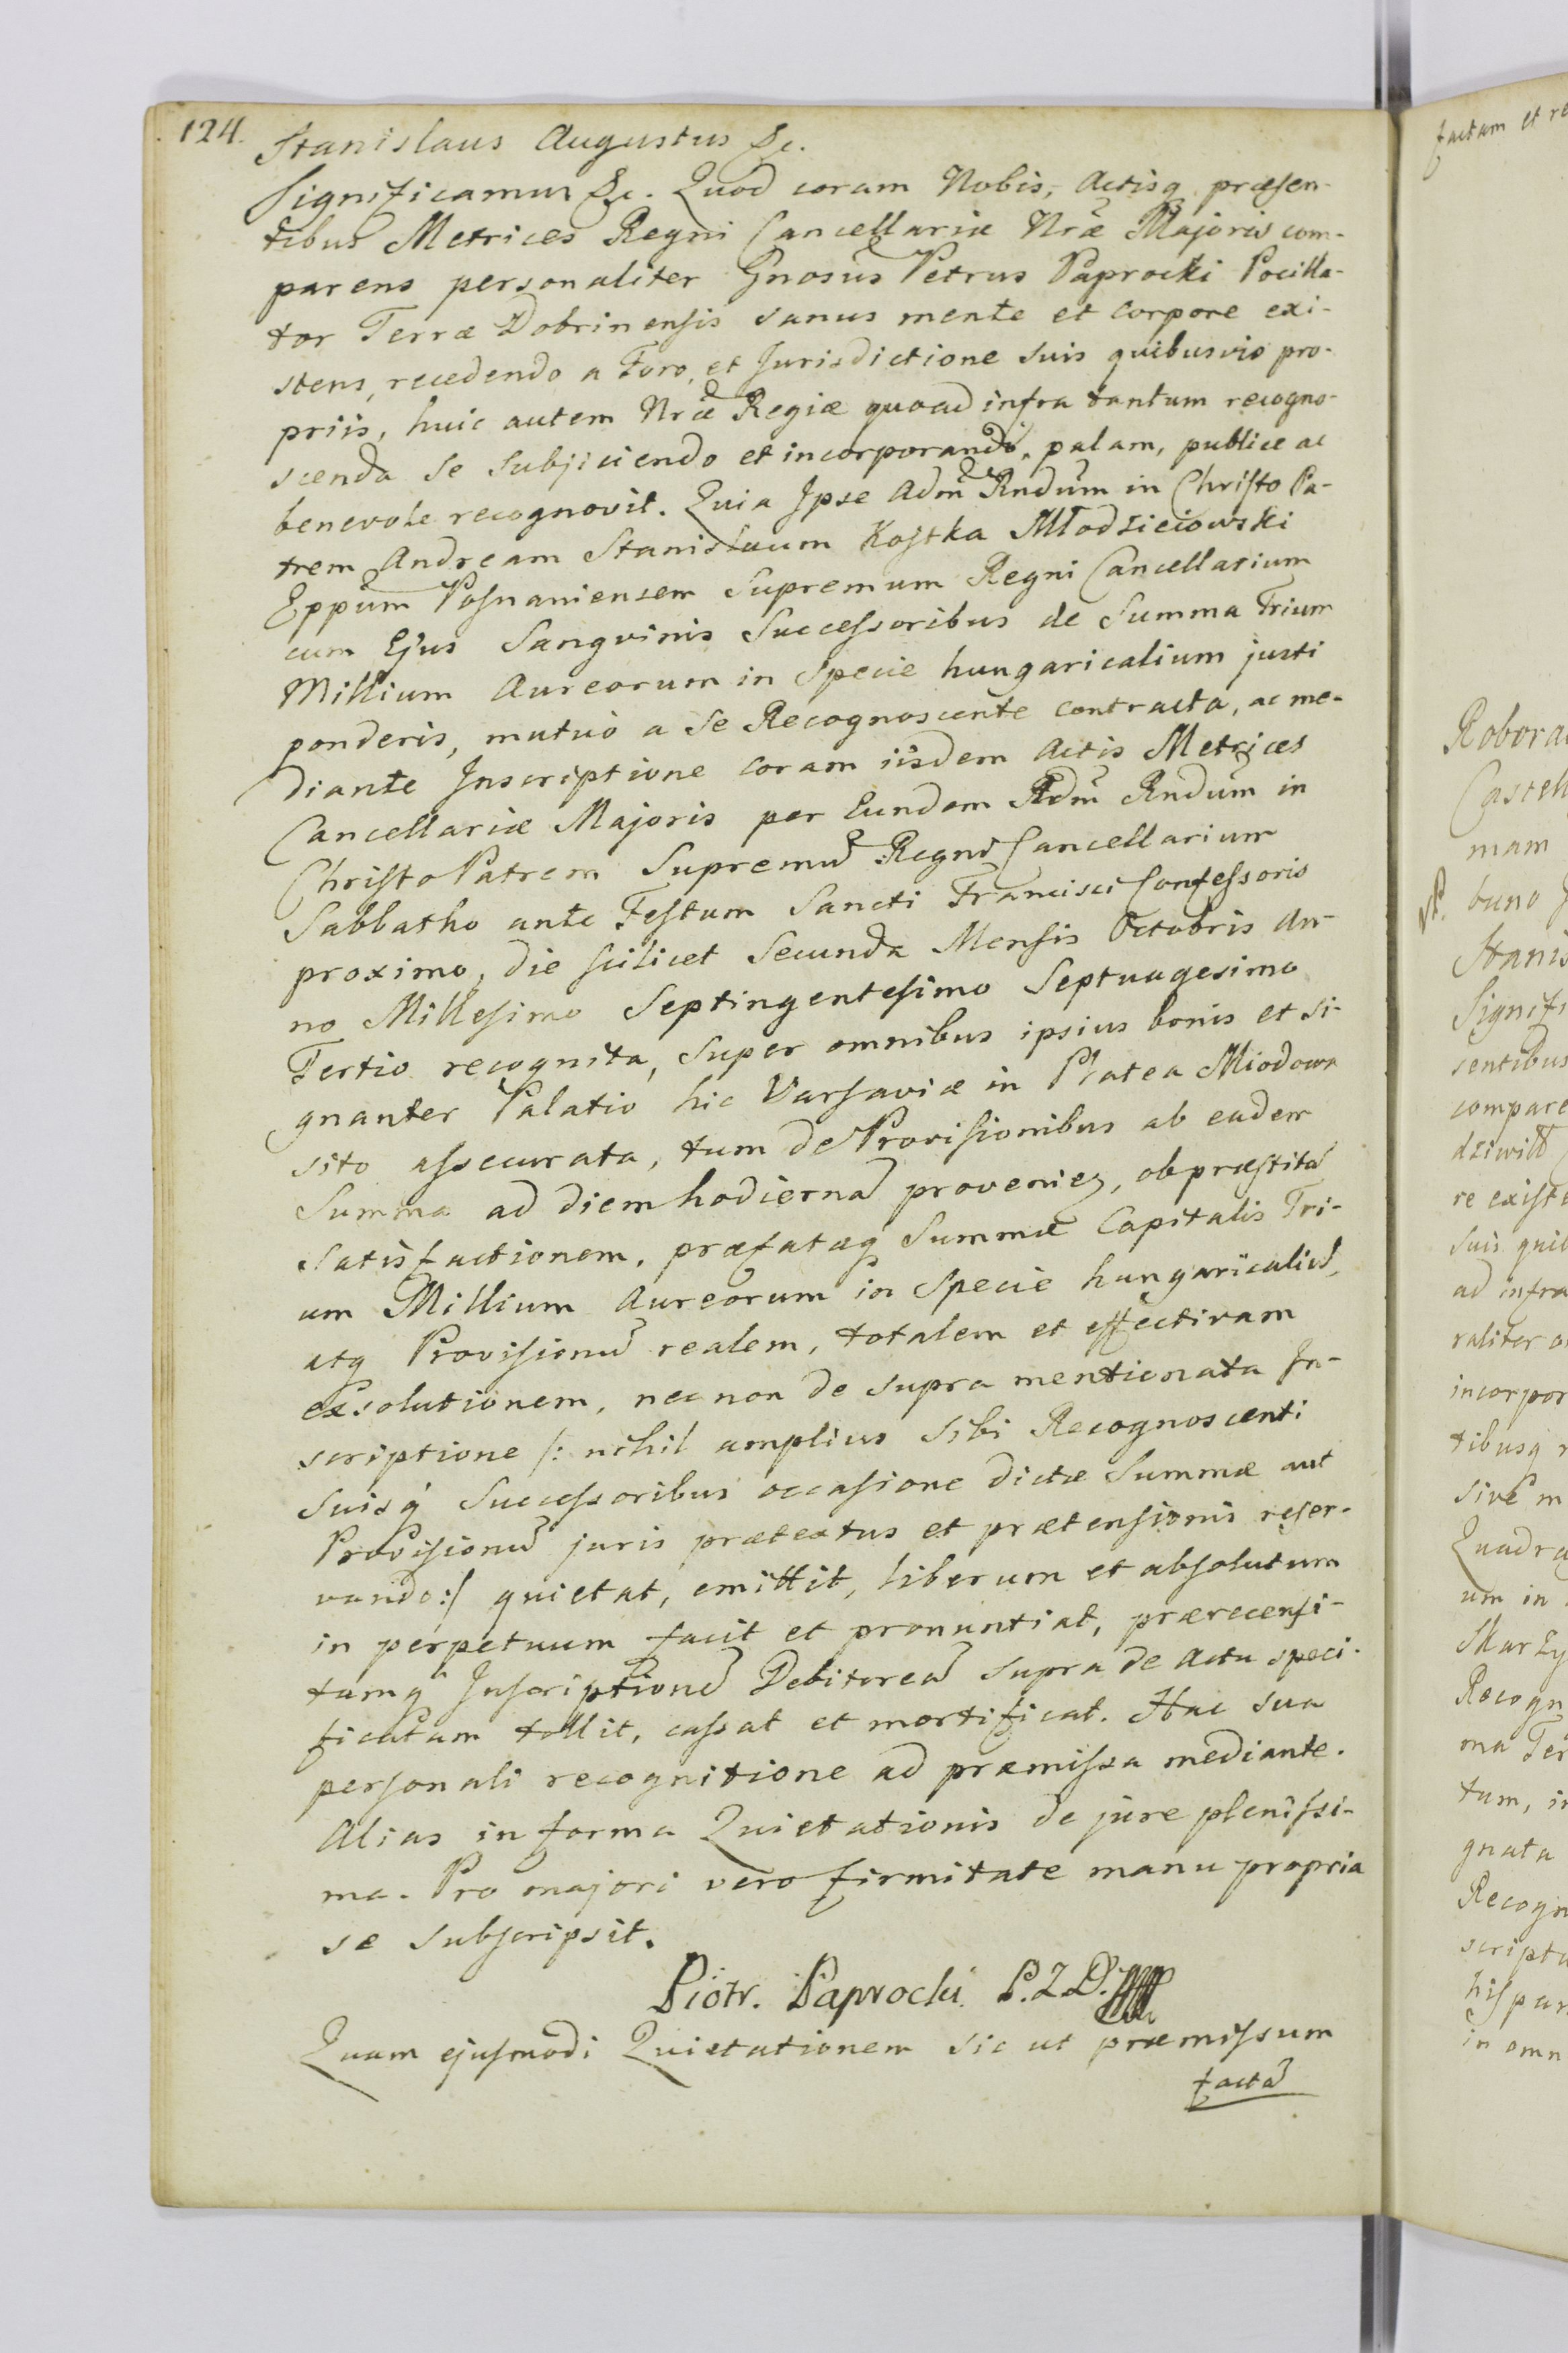 124.
Stanislaus Augustus &c.
Significamus &c. Quod coram Nobis, Actisq præsen-
tibus Metrices Regni Cancellariæ Nræ Majoris com-
parens personaliter Gnosus Petrus Paprocki Pocilla-
tor Terræ Dobrinensis sanus mente et corpore exi-
stens, recedendo a Foro, et Jurisdictione suis quibusvis pro-
priis, huic autem Nræ Regiæ quoad infra tantum recogno-
scenda se subjiciendo et incorporando, palam, publice ac
benevole recognovit. Quia Ipse Adm̃ Rndũm in Christo Pa-
trem Andream Stanislaum Kostka Młodzieiowski
Eppũm Posnaniensem Supremum Regni Cancellarium
cum Ejus Sangvinis Successoribus de Summa Trium
Millium Aureorum in specie hungaricalium justi
ponderis, mutuò a se Recognoscente contracta, ac me-
diante Inscriptione coram iisdem Actis Metrices
Cancellariæ Majoris per Eundem Adm̃ Rndũm in
Christo Patrem Supremũ Regni Cancellarium
Sabbatho ante Festum Sancti Francisci Confessoris
proximo, die scilicet Secunda Mensis Octobris An-
no Millesimo Septingentesimo Septuagesimo
Tertio recognita, super omnibus ipsius bonis et si-
gnanter Palatio hic Varsaviæ in Platea Miodowa
sito assecurata, tum de Provisionibus ab eadem
Summa ad diem hodiernã proveniez, ob præstitã
satisfactionem, præfatæq Summæ Capitalis Tri-
um Millium Aureorum in specie hungaricaliũ,
atq Provisionũ realem, totalem et effectivam
exsolutionem, nec non de supra mentionata In-
scriptione /: nihil amplius sibi Recognoscenti
suisq Successoribus occasione dictæ Summæ aut
Provisionũ juris prætextus et prætensionis reser-
vando :/ quietat, emittit, liberum et absolutum
in perpetuum facit et pronuntiat, prærecensi-
tamq Inscriptionẽ Debitoreã supra de Actu speci-
ficatam tollit, cassat et mortificat. Hac sua
personali recognitione ad præmissa mediante.
Alias in forma Quietationis de jure plenissi-
ma. Pro majori vero firmitate manu propria
se subscripsit.
Piotr. Paprocki. P. Z. D.
Quam ejusmodi Quietationem sic ut præmissum
factã
factam et re
Robora
Castell
mam
buno
Stanis
Signifi
sentibus
compare
dziwiłł
re existe
suis quib
ad infra
raliter
incorpor
tibusq
sive m
Quadra
um in
Marzy
Recogn
ma Ter
tum, i
gnata
Recogn
scripta
his par
in omn